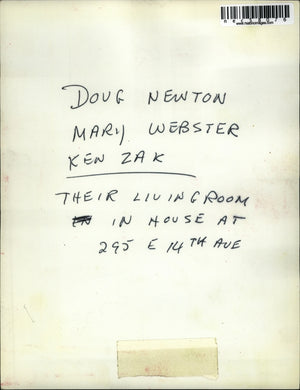 DOUG NEWTON
MARY WEBSTER
KEN ZAK
THEIR LIVINGROOM
IN HOUSE AT
295 E 14TH AVE